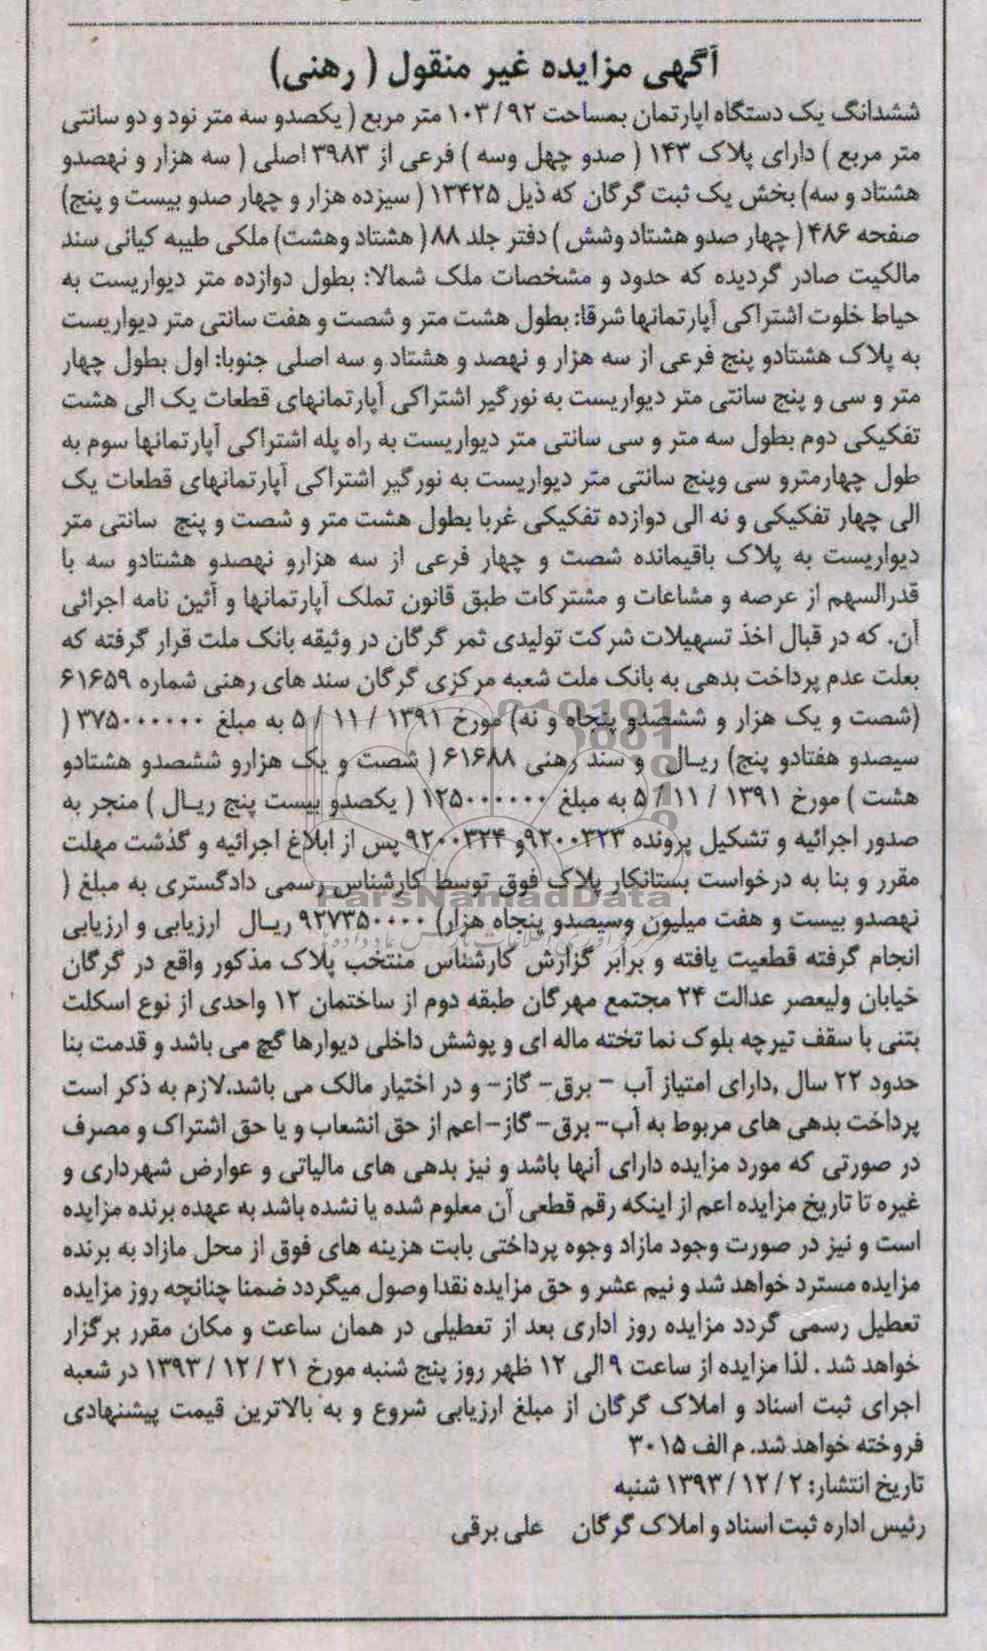 آگهی مزایده غیر منقول ( رهنی)
ششدانگ یک دستگاه اپارتمان بمساحت ۹۲ / ۱۰۳ متر مربع ( یکصدو سه متر نود و دو سانتی
متر مربع ) دارای پلاک ۱۴۳ ( صدو چهل وسه ) فرعی از ۳۹۸۳ اصلی ( سه هزار و نهصدو
هشتاد و سه) بخش یک ثبت گرگان که ذیل ۱۳۴۲۵ ( سیزده هزار و چهار صدو بیست و پنج)
صفحه ۴۸۶ ( چهار صدو هشتاد وشش ) دفتر جلد ۸۸ ( هشتاد وهشت) ملکی طیبه کیانی سند
مالکیت صادر گردیده که حدود و مشخصات ملک شمالا: بطول دوازده متر دیواریست به
حیاط خلوت اشتراکی آپارتمانها شرقا: بطول هشت متر و شصت و هفت سانتی متر دیواریست
به پلاک هشتادو پنج فرعی از سه هزار و نهصد و هشتاد و سه اصلی جنوبا: اول بطول چهار
متر و سی و پنج سانتی متر دیواریست به نورگیر اشتراکی آپارتمانهای قطعات یک الی هشت
تفکیکی دوم بطول سه متر و سی سانتی متر دیواریست به راه پله اشتراکی آپارتمانها سوم به
طول چهارمترو سی وپنج سانتی متر دیواریست به نورگیر اشتراکی آپارتمانهای قطعات یک
الی چهار تفکیکی و نه الی دوازده تفکیکی غربا بطول هشت متر و شصت و پنج سانتی متر
دیواریست به پلاک باقیمانده شصت و چهار فرعی از سه هزارو نهصدو هشتادو سه با
قدرالسهم از عرصه و مشاعات و مشترکات طبق قانون تملک آپارتمانها و آئین نامه اجرائی
آن. که در قبال اخذ تسهیلات شرکت تولیدی ثمر گرگان در وثیقه بانک ملت قرار گرفته که
بعلت عدم پرداخت بدهی به بانک ملت شعبه مرکزی گرگان سند های رهنی شماره ۶۱۶۵۹
(شصت و یک هزار و ششصدو پنجاه و نه) مورخ ۱۳۹۱ / ۱۱ / ۵ به مبلغ ۳۷۵۰۰۰۰۰۰ (
سیصدو هفتادو پنج) ریال و سند رهنی ۶۱۶۸۸ ( شصت و یک هزارو ششصدو هشتادو
هشت ) مورخ ۱۳۹۱ / ۱۱ / ۵ به مبلغ ۱۲۵۰۰۰۰۰۰ ( یکصدو بیست پنج ریال ) منجر به
صدور اجرائیه و تشکیل پرونده ۹۲۰۰۳۲۳و ۹۲۰۰۳۲۴ پس از ابلاغ اجرائیه و گذشت مهلت
مقرر و بنا به درخواست بستانکار پلاک فوق توسط کارشناس رسمی دادگستری به مبلغ (
نهصدو بیست و هفت میلیون وسیصدو پنجاه هزار) ۹۲۷۳۵۰۰۰۰ ریال ارزیابی و ارزیابی
انجام گرفته قطعیت یافته و برابر گزارش کارشناس منتخب پلاک مذکور واقع در گرگان
خیابان ولیعصر عدالت ۲۴ مجتمع مهرگان طبقه دوم از ساختمان ۱۲ واحدی از نوع اسکلت
بتنی با سقف تیرچه بلوک نما تخته ماله ای و پوشش داخلی دیوارها گچ می باشد و قدمت بنا
حدود ۲۲ سال ,دارای امتیاز آب – برق- گاز- و در اختیار مالک می باشد.لازم به ذکر است
پرداخت بدهی های مربوط به آب- برق- گاز- اعم از حق انشعاب و یا حق اشتراک و مصرف
در صورتی که مورد مزایده دارای آنها باشد و نیز بدهی های مالیاتی و عوارض شهرداری و
غیره تا تاریخ مزایده اعم از اینکه رقم قطعی آن معلوم شده یا نشده باشد به عهده برنده مزایده
است و نیز در صورت وجود مازاد وجوه پرداختی بابت هزینه های فوق از محل مازاد به برنده
مزایده مسترد خواهد شد و نیم عشر و حق مزایده نقدا وصول میگردد ضمنا چنانچه روز مزایده
تعطیل رسمی گردد مزایده روز اداری بعد از تعطیلی در همان ساعت و مکان مقرر برگزار
خواهد شد . لذا مزایده از ساعت ۹ الی ۱۲ ظهر روز پنج شنبه مورخ ۲۱ / ۱۲ / ۱۳۹۳ در شعبه
اجرای ثبت اسناد و املاک گرگان از مبلغ ارزیابی شروع و به بالاترین قیمت پیشنهادی
فروخته خواهد شد. م الف ۳۰۱۵
تاریخ انتشار: ۲ / ۱۲ / ۱۳۹۳ شنبه
رئیس اداره ثبت اسناد و املاک گرگان علی برقی
ParsNamadData